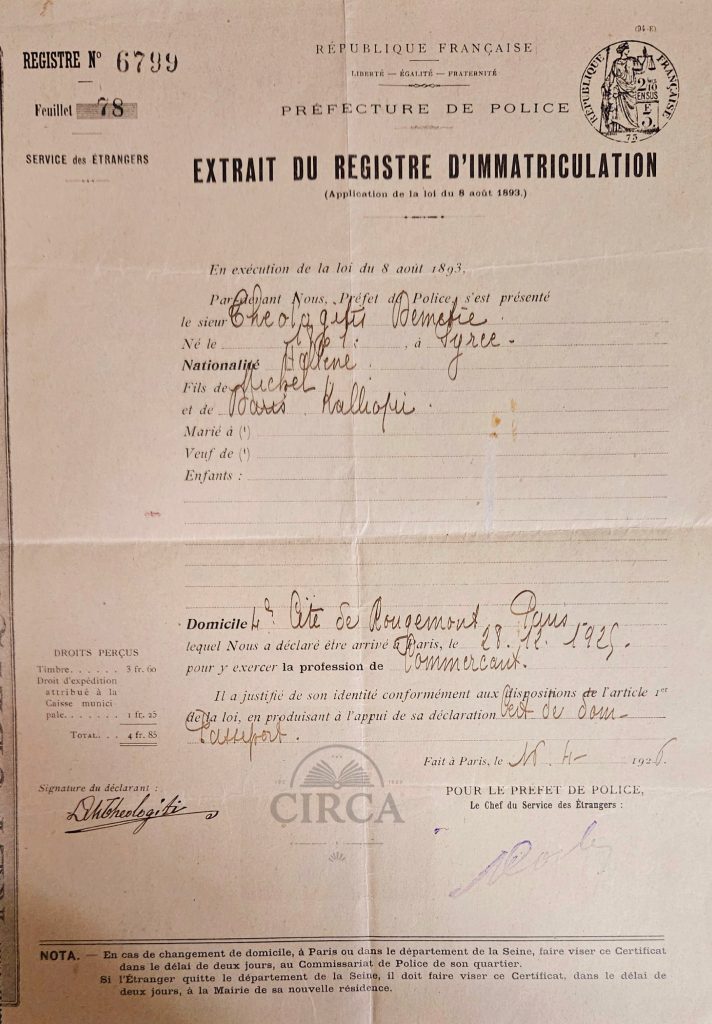 (94-E)
REGISTRE Nº 6799
Feuillet 78
SERVICE des ÉTRANGERS
RÉPUBLIQUE FRANÇAISE
LIBERTÉ — ÉGALITÉ — FRATERNITÉ
PRÉFECTURE DE POLICE
RÉPUBLIQUE FRANÇAISE
2/10
EN SUS
75
EXTRAIT DU REGISTRE D'IMMATRICULATION
(Application de la loi du 8 août 1893.)
En exécution de la loi du 8 août 1893,
Par-devant Nous, Préfet de Police, s'est présenté
le sieur Theologitis Demetre
Né le , à Syree.
Nationalité Hellène.
Fils de Michel
et de Kalliopi.
Marié à (¹)
Veuf de (¹)
Enfants :
Domicile 4 Cité de Rougemont Paris
lequel Nous a déclaré être arrivé à Paris, le 28.12.1925.
pour y exercer la profession de Commercant.
Il a justifié de son identité conformément aux dispositions de l'article 1er
de la loi, en produisant à l'appui de sa déclaration Cert de dom-
Passeport.
Fait à Paris, le 16-4- 1926.
DROITS PERÇUS
Timbre...... 3 fr. 60
Droit d'expédition
attribué à la
Caisse munici
pale..... 1 fr. 25
TOTAL... 4 fr. 85
Signature du déclarant :
DMTheologiti
POUR LE PRÉFET DE POLICE,
Le Chef du Service des Étrangers :
CIRCA
NOTA. — En cas de changement de domicile, à Paris ou dans le département de la Seine, faire viser ce Certificat
dans le délai de deux jours, au Commissariat de Police de son quartier.
Si l'Étranger quitte le département de la Seine, il doit faire viser ce Certificat, dans le délai de
deux jours, à la Mairie de sa nouvelle résidence.